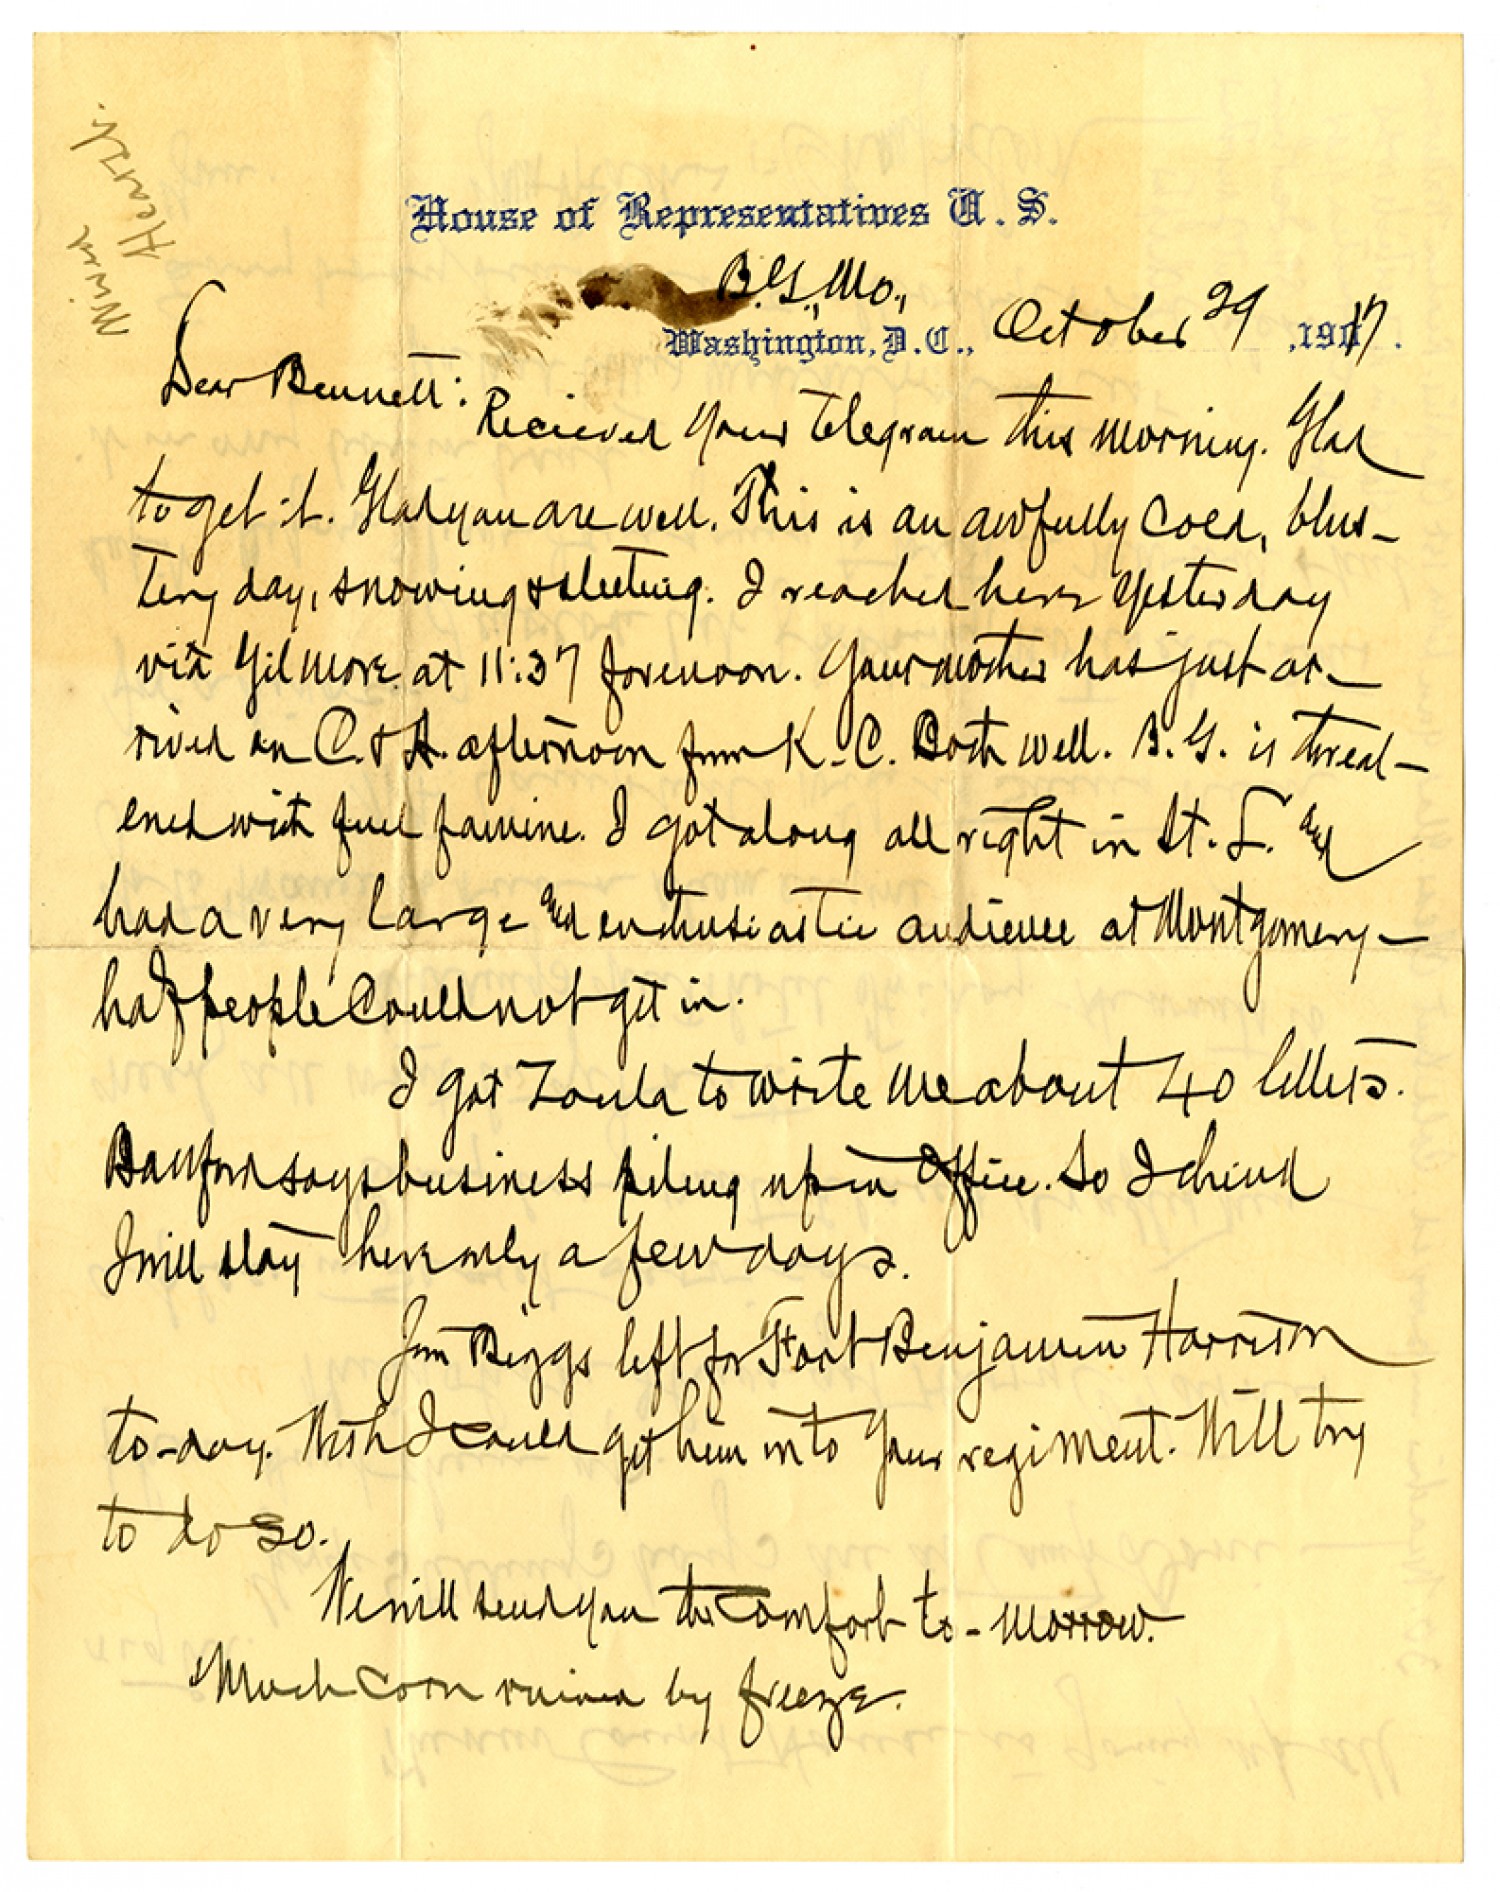 House of Representatives U. S.
B.G., Mo.,
Washington, D. C., October 29, 1917.
Dear Bennett:
Recieved your telegram this morning. Glad
to get it. Glad you are well. This is an awfully cold, blus-
tery day, snowing & sleeting. I reached here yesterday
via Gilmore at 11:37 forenoon. Your mother has just ar-
rived on C. & A. afternoon from K. C. Both well. B. G. is threat-
ened with fuel famine. I got along all right in St. L. and
had a very large and enthusiastic audience at Montgomery-
half people could not get in.
I got Zoula to write me about 40 letters.
says business piling up in office. So I
I will stay here only a few days.
Jim Biggs left for Fort Benjamin Harrison
to-day. Wish I could get him into your regiment. Will try
to do so.
We will send you the comfort to-morrow.
Much corn ruined by freeze.